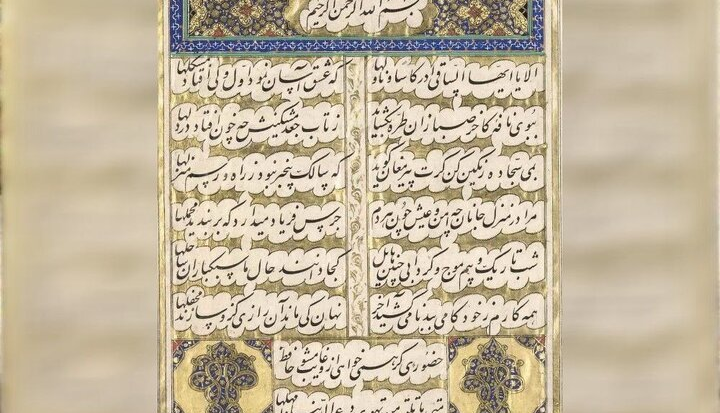 بسم الله الرحمن الرحیم
الا یا ایها الساقی ادر کاسا و ناولها که عشق آسان نمود اول ولی افتاد مشکلها
ببوی نافه کاخر صبا زان طره بگشاید ز تاب جعد مشکینش چه خون افتاد در دلها
بمی سجاده رنگین کن گرت پیر مغان گوید که سالک بیخبر نبود ز راه و رسم منزلها
مرا در منزل جانان چه امن و عیش چون هر دم جرس فریاد میدارد که بربندید محملها
شب تاریک و بیم موج و گردابی چنین هایل کجا دانند حال ما سبکباران ساحلها
همه کارم ز خود کامی ببدنامی کشید آخر نهان کی ماند آن رازی کزو سازند محفلها
حضوری گر همی خواهی ازو غایب مشو حافظ
متی ما تلق من تهوی دع الدنیا